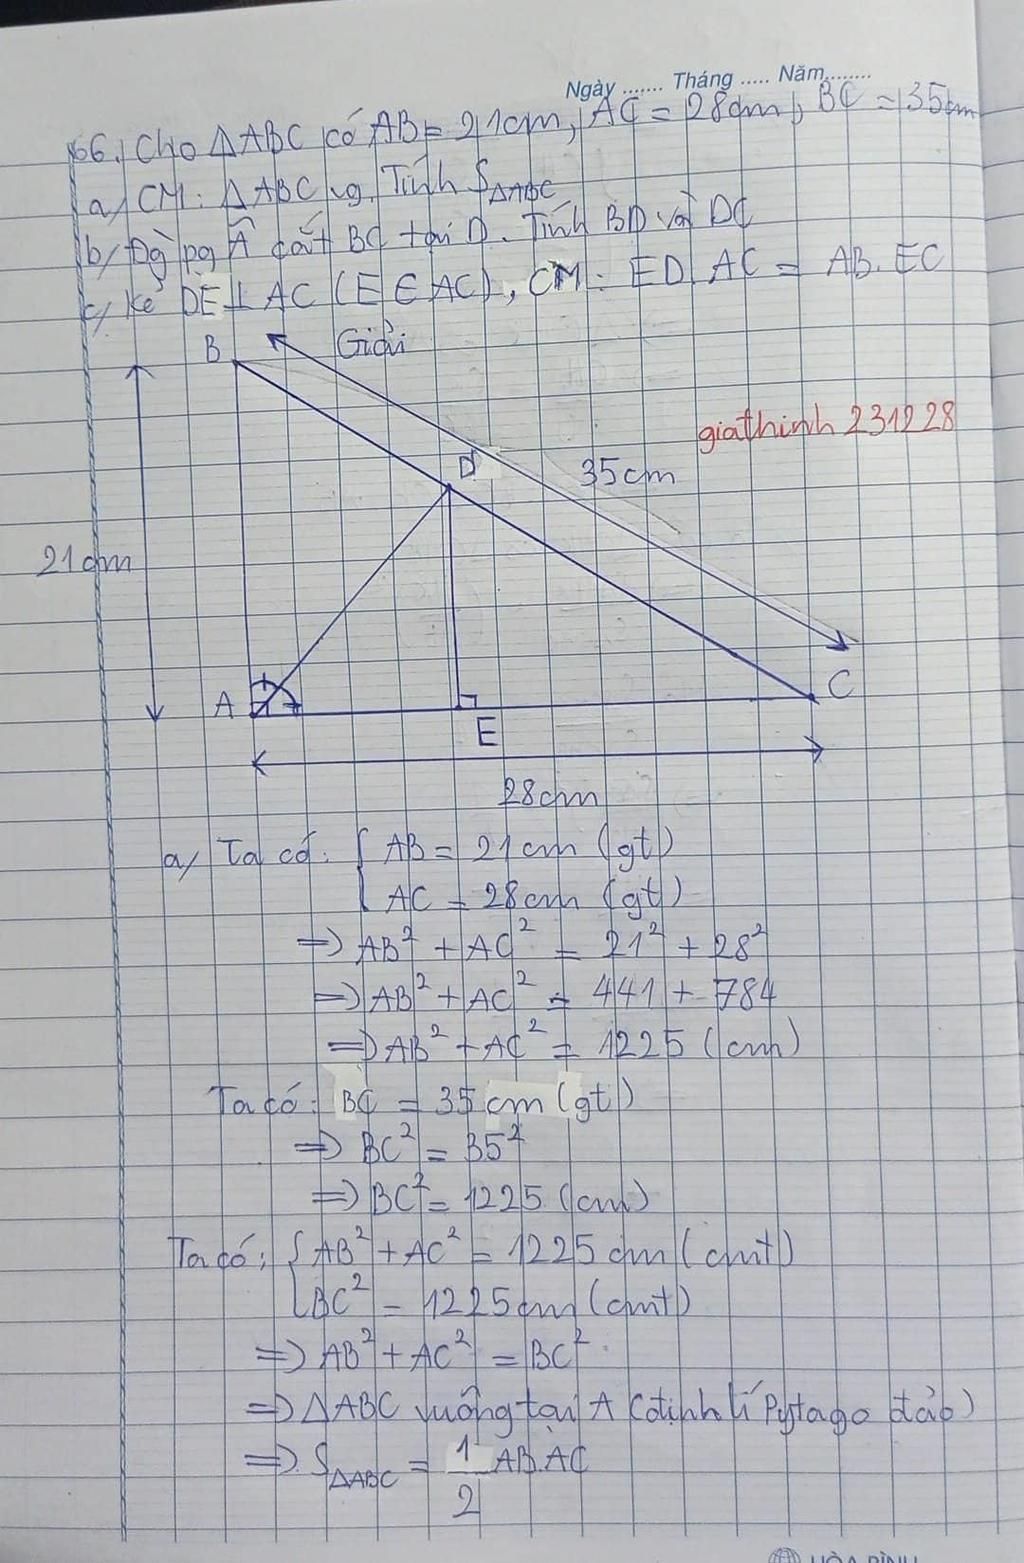 Ngày ....... Tháng ..... Năm........
66. Cho ΔABC có AB = 21cm, AC = 28cm, BC = 35cm
a/ CM: ΔABC vg. Tính SΔABC
b/ Đg pg Â cắt BC tại D. Tính BD và DC
c/ Kẻ DE ⊥ AC (E ∈ AC), CM: ED.AC = AB.EC
Giải
B
giathinh231228
D
35cm
21cm
A
C
E
28cm
a/ Ta có: { AB = 21cm (gt)
AC = 28cm (gt)
=> AB² + AC² = 21² + 28²
=> AB² + AC² = 441 + 784
=> AB² + AC² = 1225 (cm)
Ta có: BC = 35cm (gt)
=> BC² = 35²
=> BC² = 1225 (cm)
Ta có: { AB² + AC² = 1225cm (cmt)
BC² = 1225cm (cmt)
=> AB² + AC² = BC²
=> ΔABC vuông tại A (định lí Pytago đảo)
=> SΔABC = 1/2 AB.AC
HÒA BÌNH